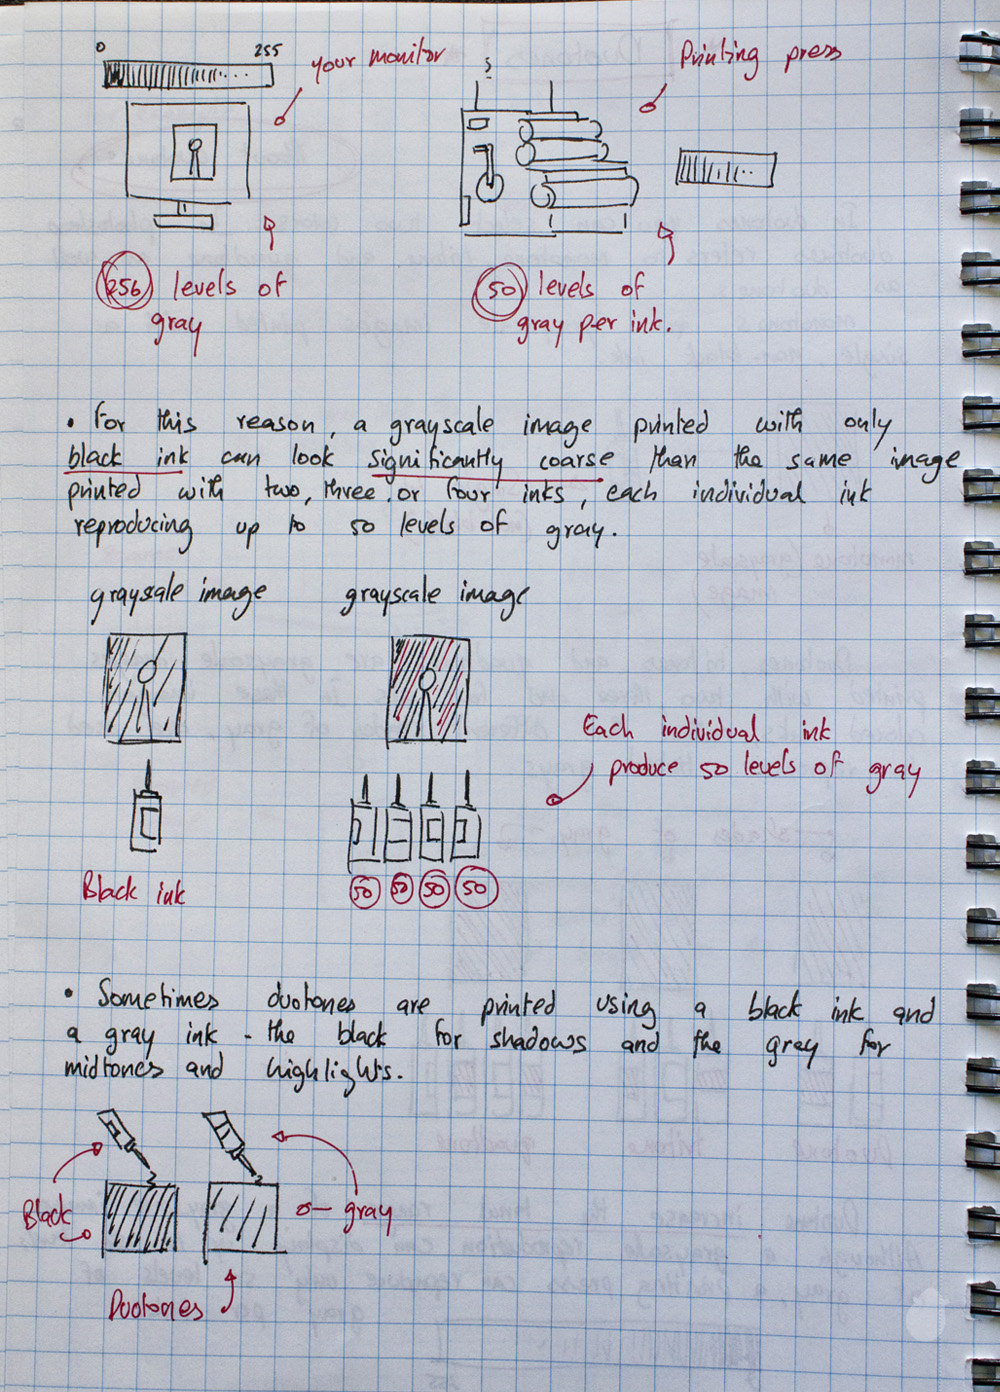 0 255
your monitor
Printing press
256 levels of
gray
50 levels of
gray per ink.
• For this reason, a grayscale image printed with only
black ink can look significantly coarse than the same image
printed with two, three or four inks, each individual ink
reproducing up to 50 levels of gray.
graysale image
grayscale image
Each individual ink
produce 50 levels of gray
Black ink
50 50 50 50
• Sometimes duotones are printed using a black ink and
a gray ink - the black for shadows and the gray for
midtones and highlights.
Black
gray
Duotones